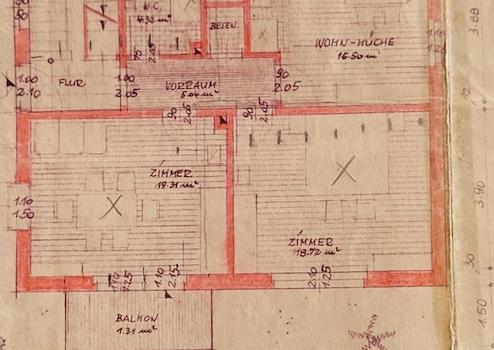 W.C.
4.30 m²
75
2.05
BESEN
WOHN-KÜCHE
16.50 m²
3.88
1.00
2.10
FLUR
1.00
2.05
VORRAUM
5.04 m²
90
2.05
12
90
2.05
90
2.05
ZIMMER
19.31 m²
3.90
1.10
1.50
ZIMMER
18.72 m²
1.10
2.15
2.10
1.25
30
BALKON
1.31 m²
1.50